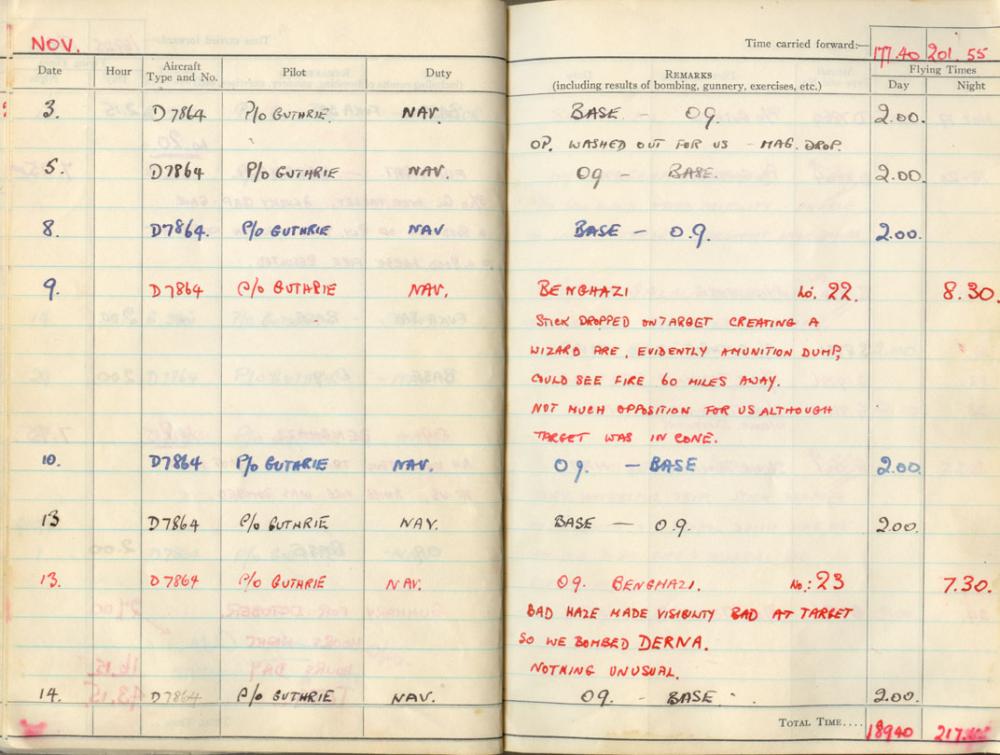 NOV.
Time carried forward:— 177.40 201.55
Date Hour Aircraft Type and No. Pilot Duty REMARKS (including results of bombing, gunnery, exercises, etc.) Flying Times Day Night
3. D7864 P/o GUTHRIE NAV. BASE — O9. 2.00.
OP. WASHED OUT FOR US - MAG. DROP.
5. D7864 P/o GUTHRIE NAV. O9 — BASE. 2.00.
8. D7864. P/o GUTHRIE NAV BASE — O.9. 2.00.
9. D7864 P/o GUTHRIE NAV. BENGHAZI No. 22. 8.30.
STICK DROPPED ON TARGET CREATING A
WIZARD FIRE, EVIDENTLY AMUNITION DUMP,
COULD SEE FIRE 60 MILES AWAY.
NOT MUCH OPPOSITION FOR US ALTHOUGH
TARGET WAS IN CONE.
10. D7864 P/o GUTHRIE NAV. O9. — BASE 2.00.
13 D7864 P/o GUTHRIE NAV. BASE — O.9. 2.00.
13. D7864 P/o GUTHRIE NAV. O9. BENGHAZI. No.: 23 7.30.
BAD HAZE MADE VISIBILITY BAD AT TARGET
SO WE BOMBED DERNA.
NOTHING UNUSUAL.
14. D7864 P/o GUTHRIE NAV. O9. — BASE. 2.00.
TOTAL TIME.... 18940 217.